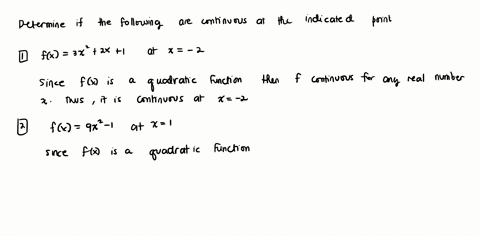 Determine if the following are continuous at the indicated point
1 f(x) = 3x² + 2x + 1 at x = -2
Since f(x) is a quadratic function then f continuous for any real number
x. Thus, it is continuous at x = -2
2 f(x) = 9x² - 1 at x = 1
since f(x) is a quadratic function